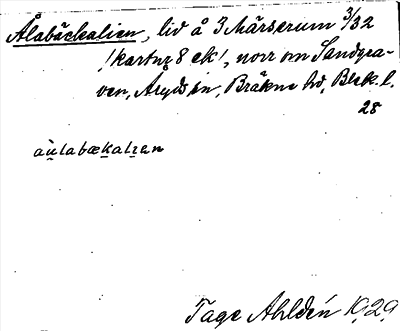 Ålabäckalien, lid å 3 Märserum 3/32
! kartnr 8 ek!, norr om Sandgra-
ven, Aryds sn, Bräkne hd, Blek. l.
28
aùlabækalıen
Tage Ahldén 1929.